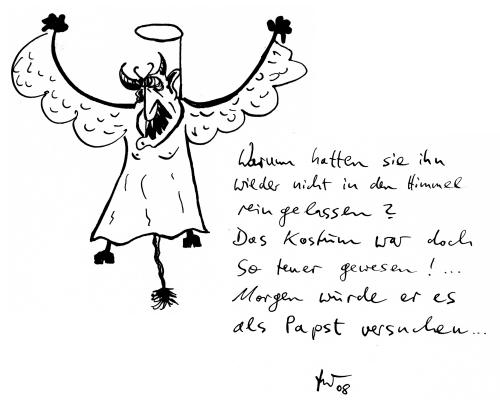 Warum hatten sie ihn
wieder nicht in den Himmel
reingelassen?
Das Kostüm war doch
so teuer gewesen!...
Morgen würde er es
als Papst versuchen...
08